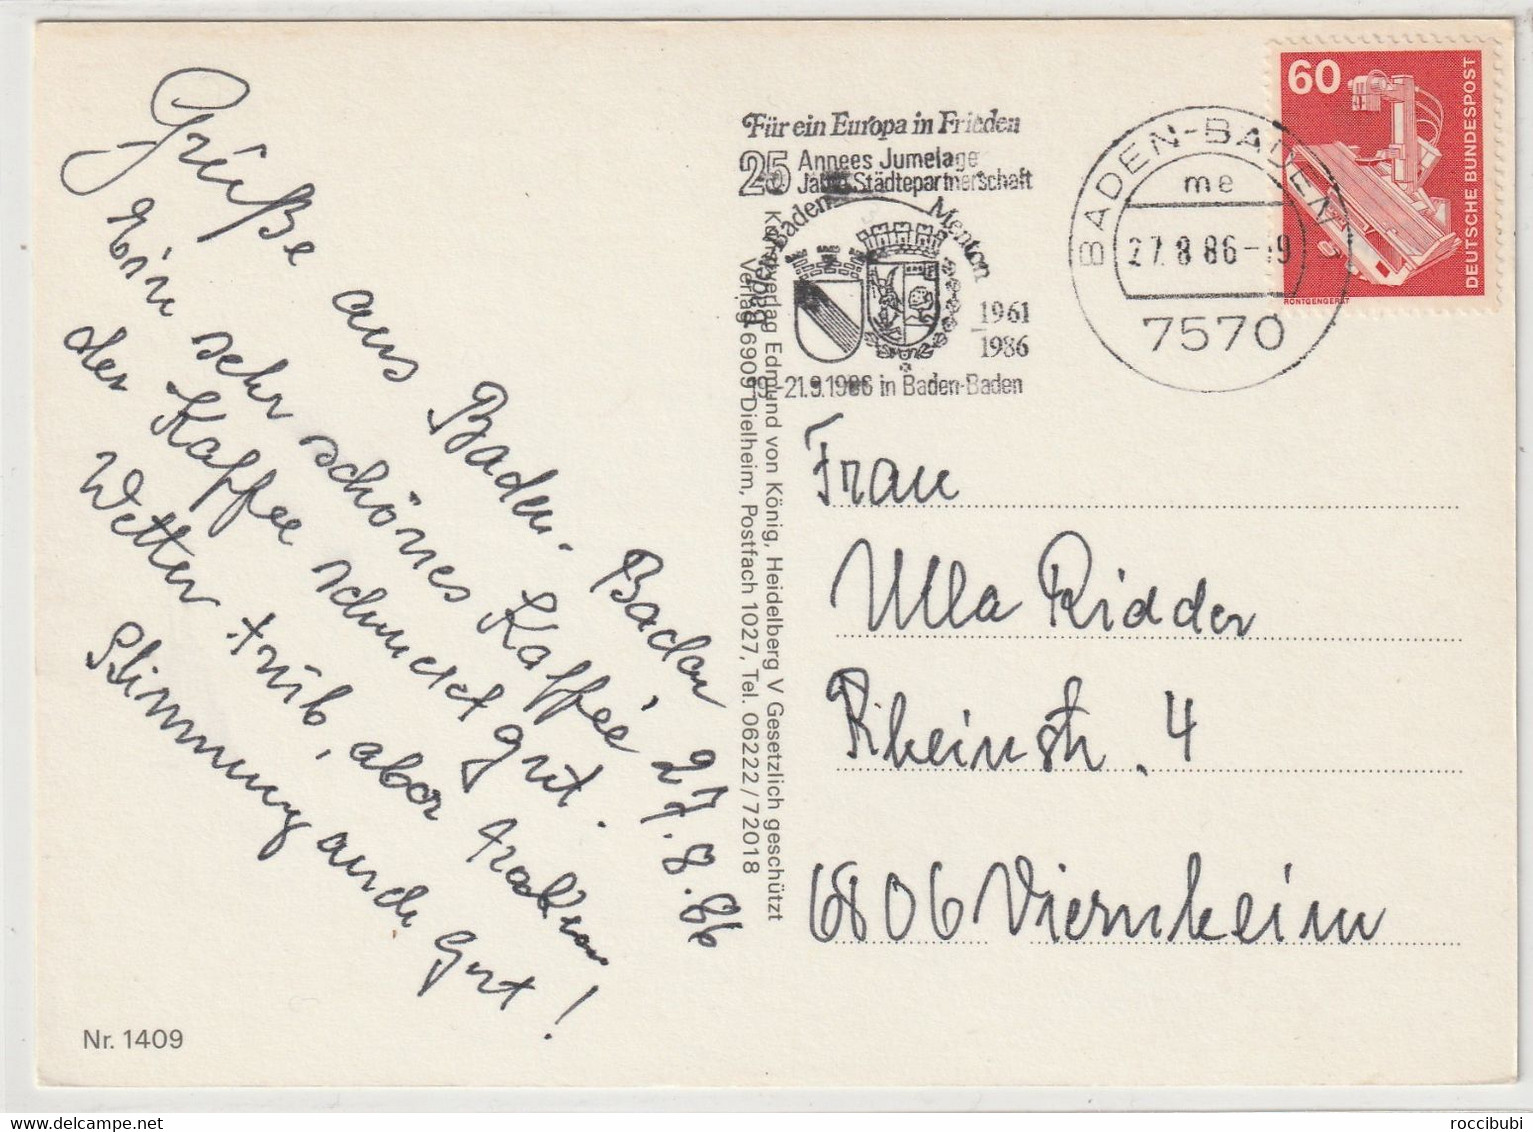 Grüße aus Baden-Baden 27.8.86
Ein sehr schönes Kaffee,
der Kaffee schmeckt gut.
Wetter trüb, aber trocken
Stimmung auch gut!
Nr. 1409
Kunstverlag Edmund von König, Heidelberg V Gesetzlich geschützt
Verlag 6909 Dielheim, Postfach 1027, Tel. 06222/72018
Für ein Europa in Frieden
25 Annees Jumelage
Jahre Städtepartnerschaft
Baden-Baden Menton
1961
1986
19-21.9.1986 in Baden-Baden
BADEN-BADEN 1
me
27.8.86-19
7570
60
DEUTSCHE BUNDESPOST
RÖNTGENGERÄT
Frau
Ulla Ridder
Rheinstr. 4
6806 Viernheim
roccibubi